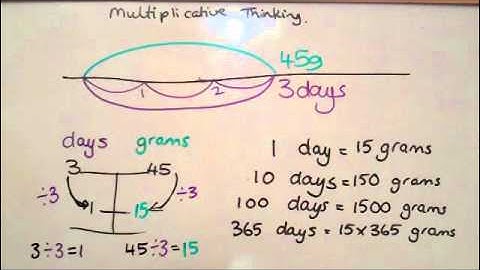 Multiplicative Thinking.
45g
1 2 3 days
days grams
3 45
÷3 1 15 ÷3
3÷3=1 45÷3=15
1 day = 15 grams
10 days = 150 grams
100 days = 1500 grams
365 days = 15×365 grams